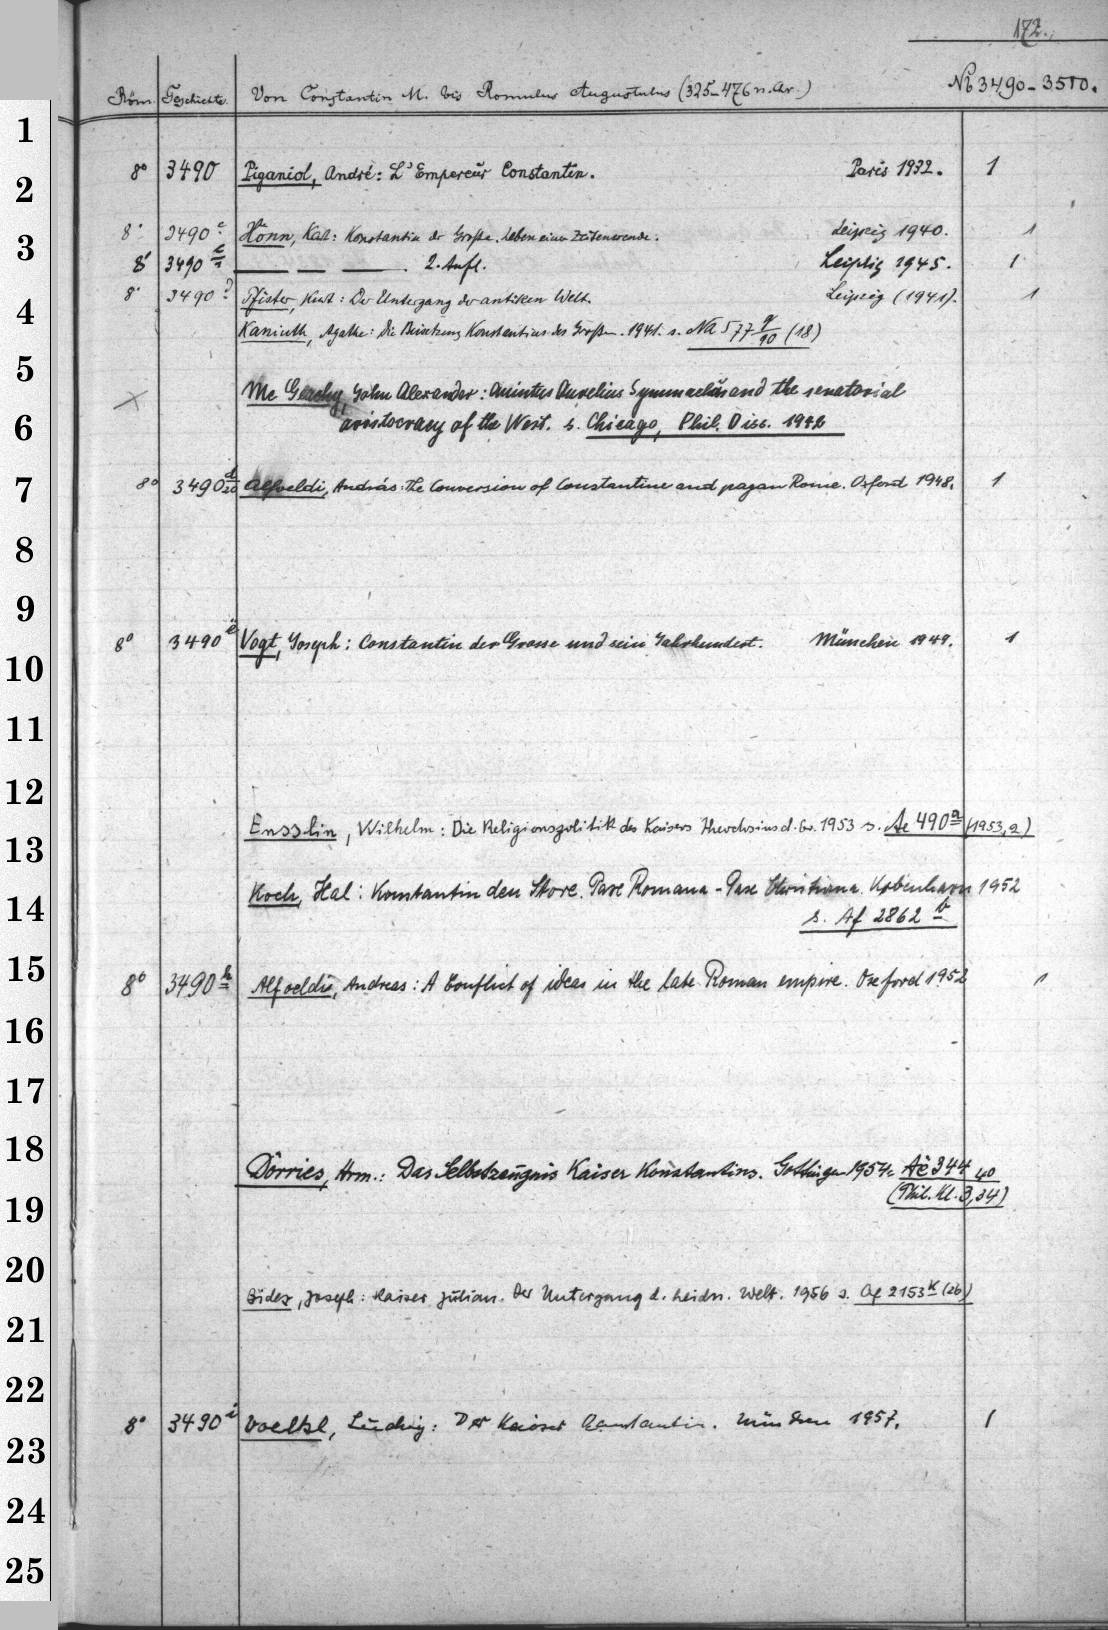 172.
Röm. Geschichte. Von Constantin M. bis Romulus Augustulus (325-476 n. Chr.) No 3490-3500.
1
8° 3490 Piganiol, André: L'Empereur Constantin. Paris 1932. 1
2
8° 3490 c Hönn, Karl: Konstantin der Große. Leben einer Zeitenwende. Leipzig 1940. 1
3
8° 3490 — — — 2. Aufl. Leipzig 1945. 1
8° 3490 Pfister, Kurt: Der Untergang der antiken Welt. Leipzig (1941). 1
4
Kaniuth, Agathe: Die Beisetzung Konstantins des Großen. 1941. s. Na 577 g/90 (18)
5
Mc Geachy, John Alexander: Quintus Aurelius Symmachus and the senatorial
6
aristocracy of the West. s. Chicago, Phil. Diss. 1942
7
8° 3490 d/20 Alfoeldi, András: The Conversion of Constantine and pagan Rome. Oxford 1948. 1
8
9
8° 3490 e Vogt, Joseph: Constantin der Grosse und sein Jahrhundert. München 1949. 1
10
11
12
Ensslin, Wilhelm: Die Religionspolitik des Kaisers Theodosius d. Gr. 1953 s. Ae 490 a (1953,2)
13
Koch, Hal: Konstantin den Store. Pax Romana - Pax Christiana. København 1952
14
s. Af 2862 b
15
8° 3490 h Alfoeldi, Andreas: A Conflict of ideas in the late Roman empire. Oxford 1952 1
16
17
18
Dörries, Hrm.: Das Selbstzeugnis Kaiser Konstantins. Göttingen 1954. Ae 344 40
19
(Phil. Kl. 3,34)
20
Bidez, Joseph: Kaiser Julian. Der Untergang d. heidn. Welt. 1956 s. Af 2153 k (26)
21
22
8° 3490 i Voelkl, Ludwig: Der Kaiser Konstantin. München 1957. 1
23
24
25